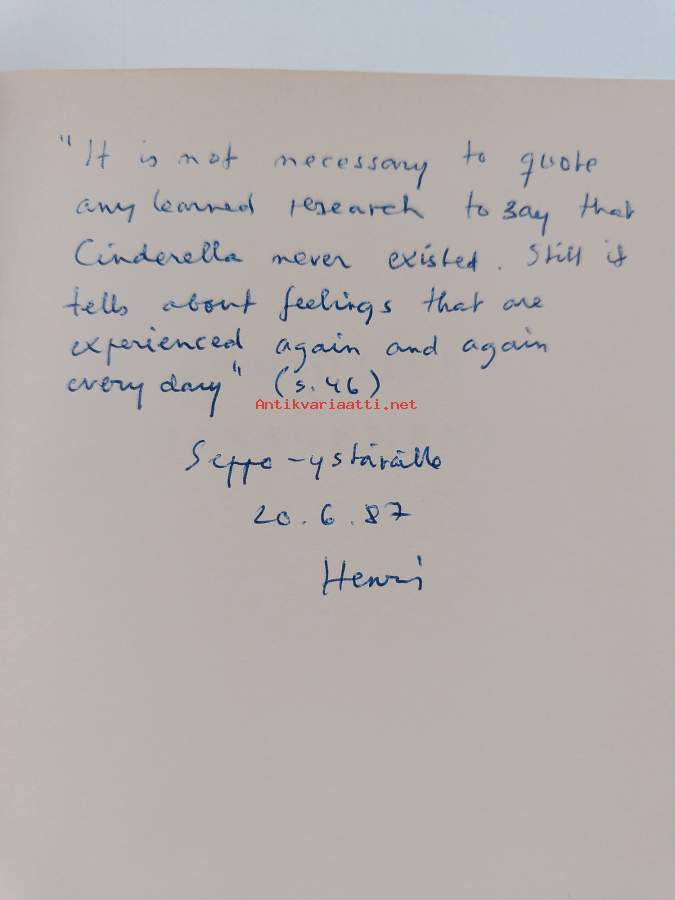 "It is not necessary to quote
any learned research to say that
Cinderella never existed. Still it
tells about feelings that are
experienced again and again
every day" (s. 46)
Antikvariaatti.net
Seppo-ystävälle
20.6.87
Henri